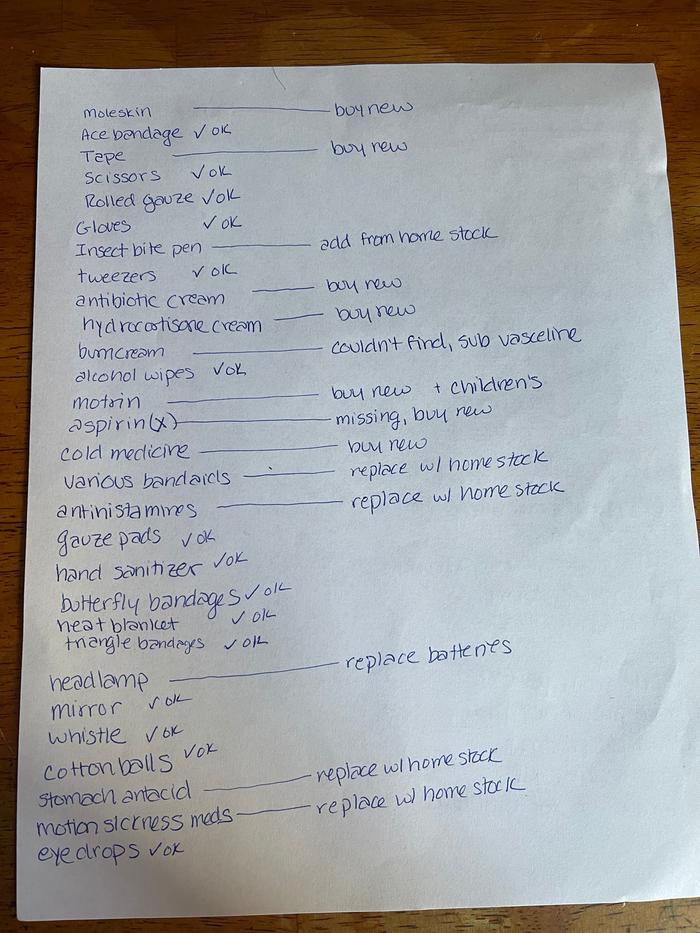 moleskin ——— buy new
Ace bandage ✓ OK
Tape ——— buy new
Scissors ✓ OK
Rolled gauze ✓ OK
Gloves ✓ OK
Insect bite pen ——— add from home stock
tweezers ✓ OK
antibiotic cream — buy new
hydrocortisone cream — buy new
burncream ——— couldn't find, sub vasceline
alcohol wipes ✓ OK
motrin ——— buy new + children's
aspirin (x) ——— missing, buy new
cold medicine ——— buy new
various bandaids ——— replace w/ home stock
antihistamines ——— replace w/ home stock
gauze pads ✓ OK
hand sanitizer ✓ OK
butterfly bandages ✓ OK
heat blanket ✓ OK
triangle bandages ✓ OK
headlamp ——— replace batteries
mirror ✓ OK
whistle ✓ OK
cotton balls ✓ OK
stomach antacid ——— replace w/ home stock
motion sickness meds ——— replace w/ home stock
eye drops ✓ OK